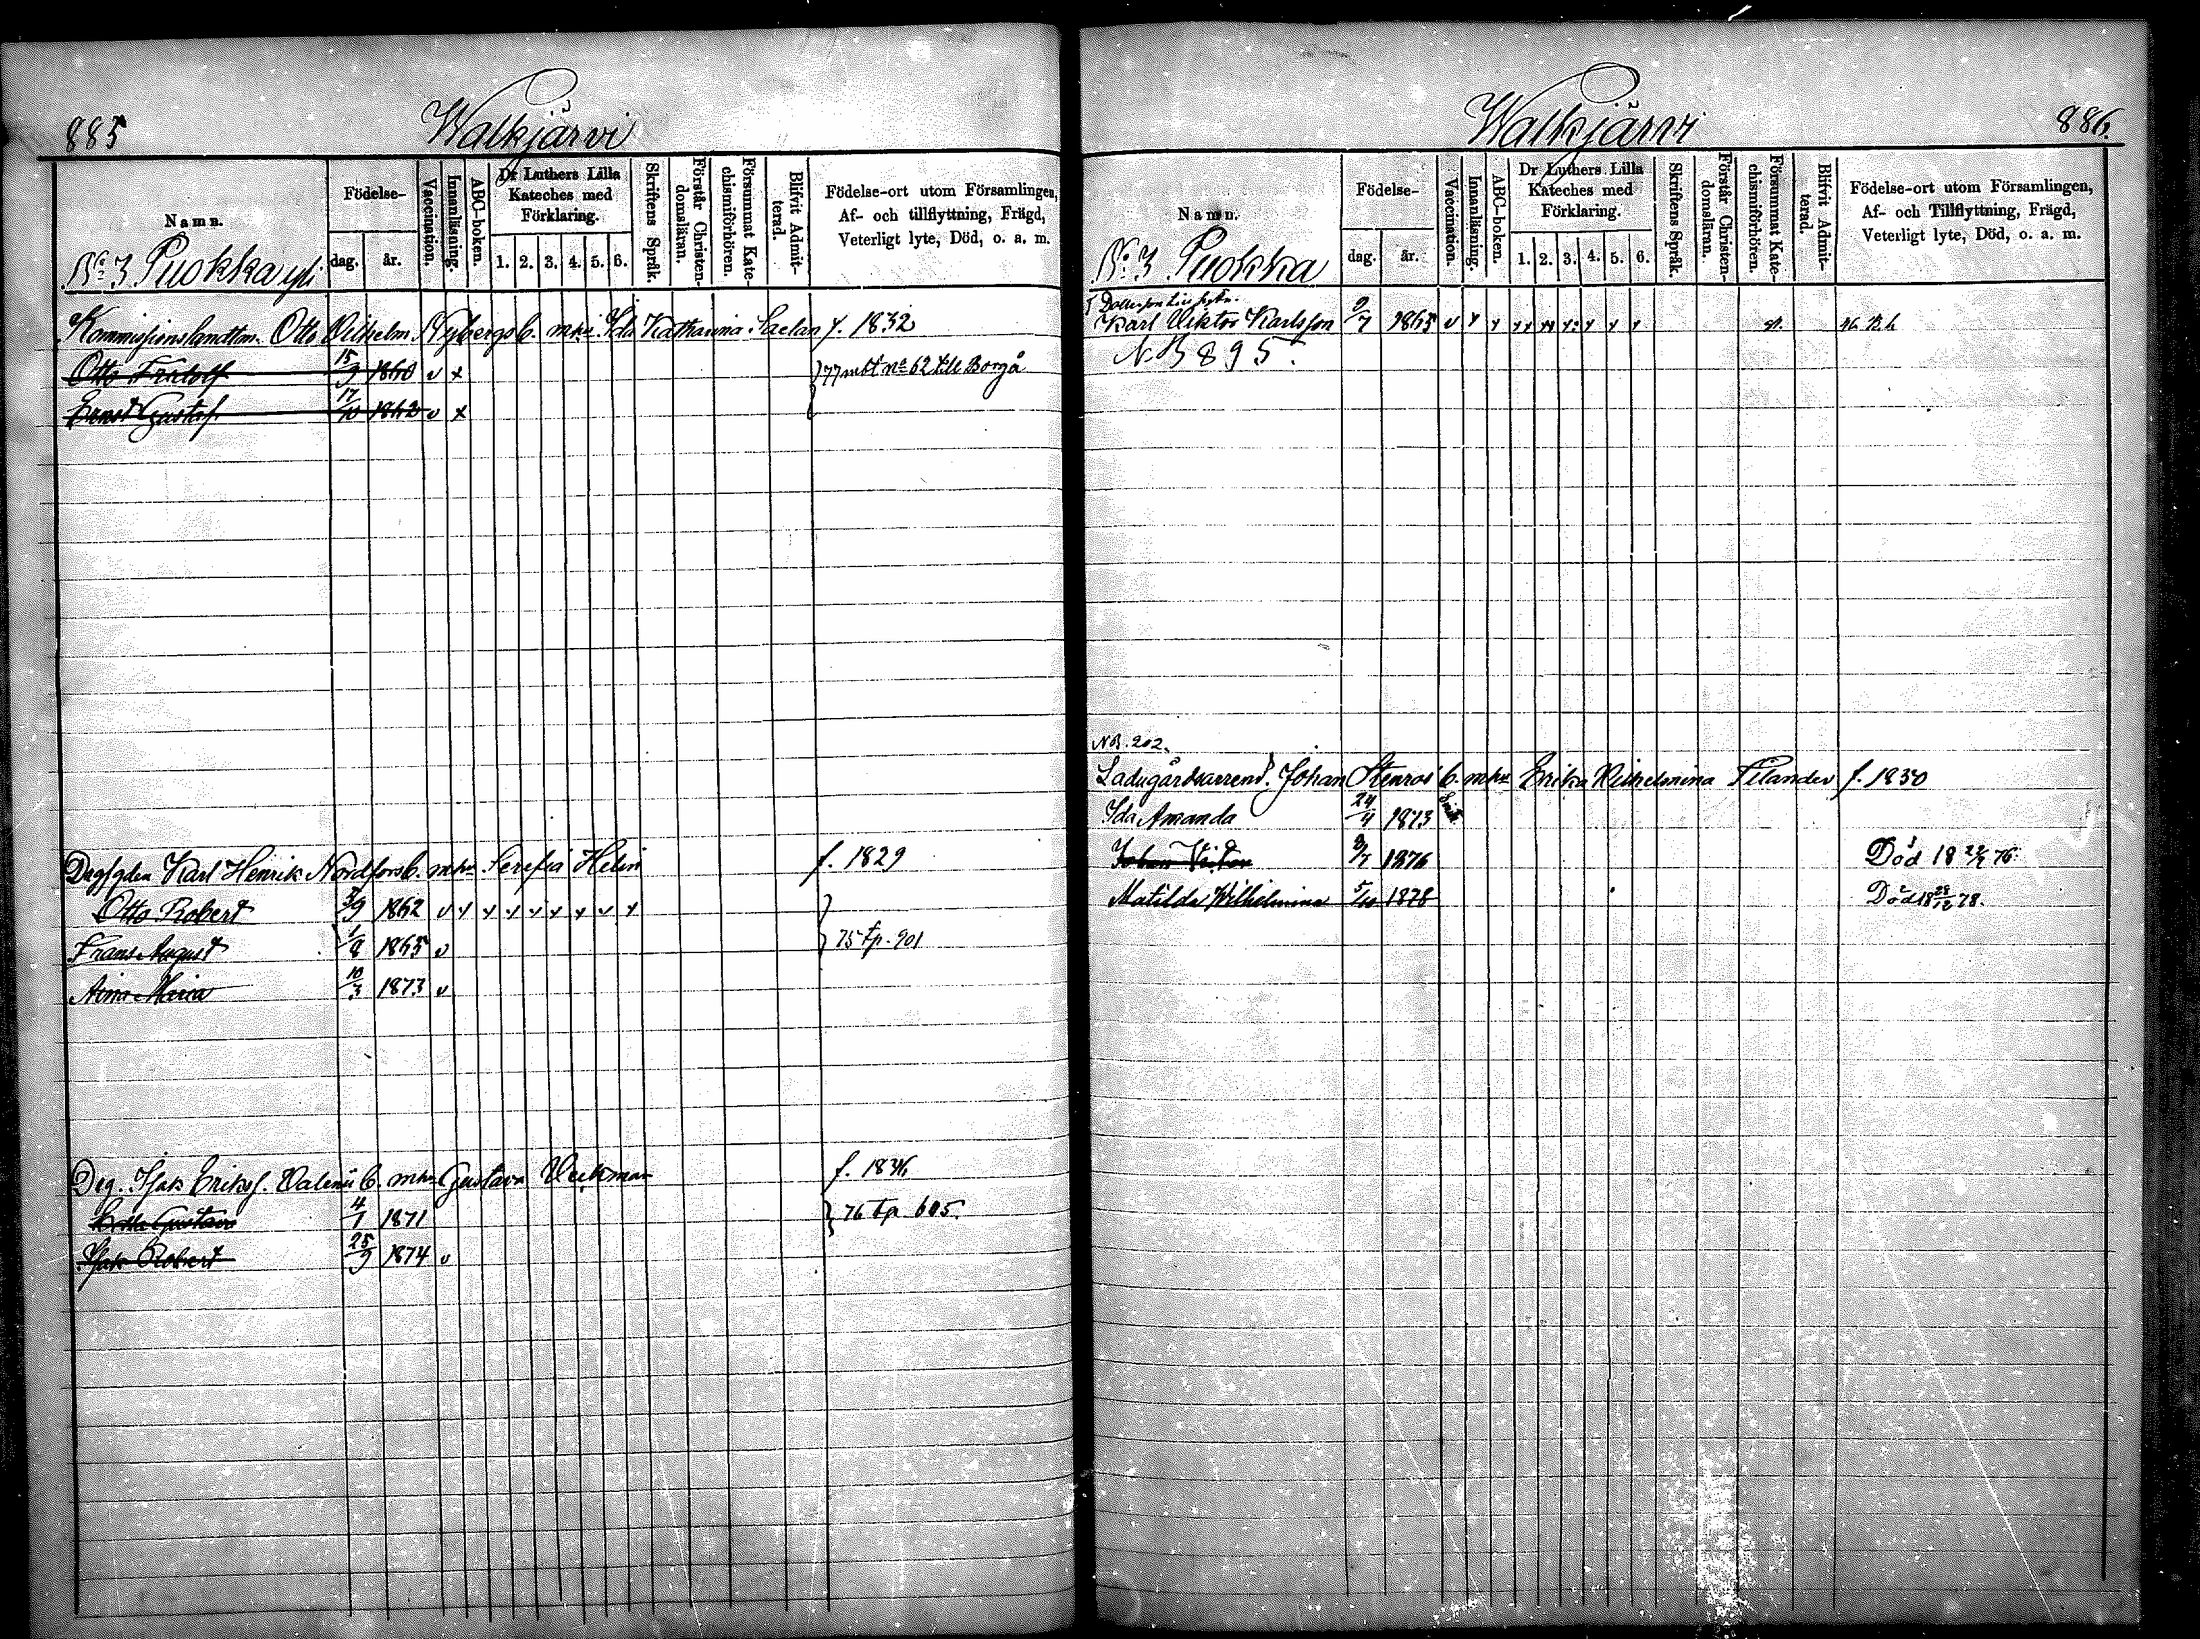 885
Walkjärvi
Namn.
Födelse-
dag.
år.
Vaccination.
Innanläsning.
ABC-boken.
Dr Luthers Lilla
Kateches med
Förklaring.
1. 2. 3. 4. 5. 6.
Skriftens Språk.
Förstår Christen-
domsläran.
Försummat Kate-
chismiförhören.
Blifvit Admit-
terad.
Födelse-ort utom Församlingen,
Af- och tillflyttning, Frägd,
Veterligt lyte, Död, o. a. m.
No 3 Puokka yli
Kommissionslandtm. Otto Vilhelm Nybergs b. m. h. Ida Katharina Saelan f. 1832
Otto Fridolf 15/9 1860 v x }77 mbt no 62 till Borgå
Ernst Gustaf 17/10 1862 v x
Karl Henrik Nordfors b. mhu Serafia Helin f. 1829
Otto Robert 3/9 1862 v y y y y y y y y
Frans August 1/8 1865 v } 75 fp. 901
Maria 10/3 1873 v
Erikss. b. mhu Gustava f. 1846
Gustava 4/1 1871 } 76 fp 605.
Isak Robert 25/9 1874 v
Walkjärvi
886.
Namn.
Födelse-
dag.
år.
Vaccination.
Innanläsning.
ABC-boken.
Dr Luthers Lilla
Kateches med
Förklaring.
1. 2. 3. 4. 5. 6.
Skriftens Språk.
Förstår Christen-
domsläran.
Försummat Kate-
chismiförhören.
Blifvit Admit-
terad.
Födelse-ort utom Församlingen,
Af- och Tillflyttning, Frägd,
Veterligt lyte, Död, o. a. m.
No 3 Puokka
Karl Viktor Karlsson 9/7 1865
NB 895.
NB. 202.
Ladugårdsarrend. Johan Stenroos b. mhu Erika Vilhelmina Filander f. 1830
Ida Amanda 24/4 1873
Johan 1876 Död
Matilda Wilhelmina 5/10 1878 Död 18 28/12 78.